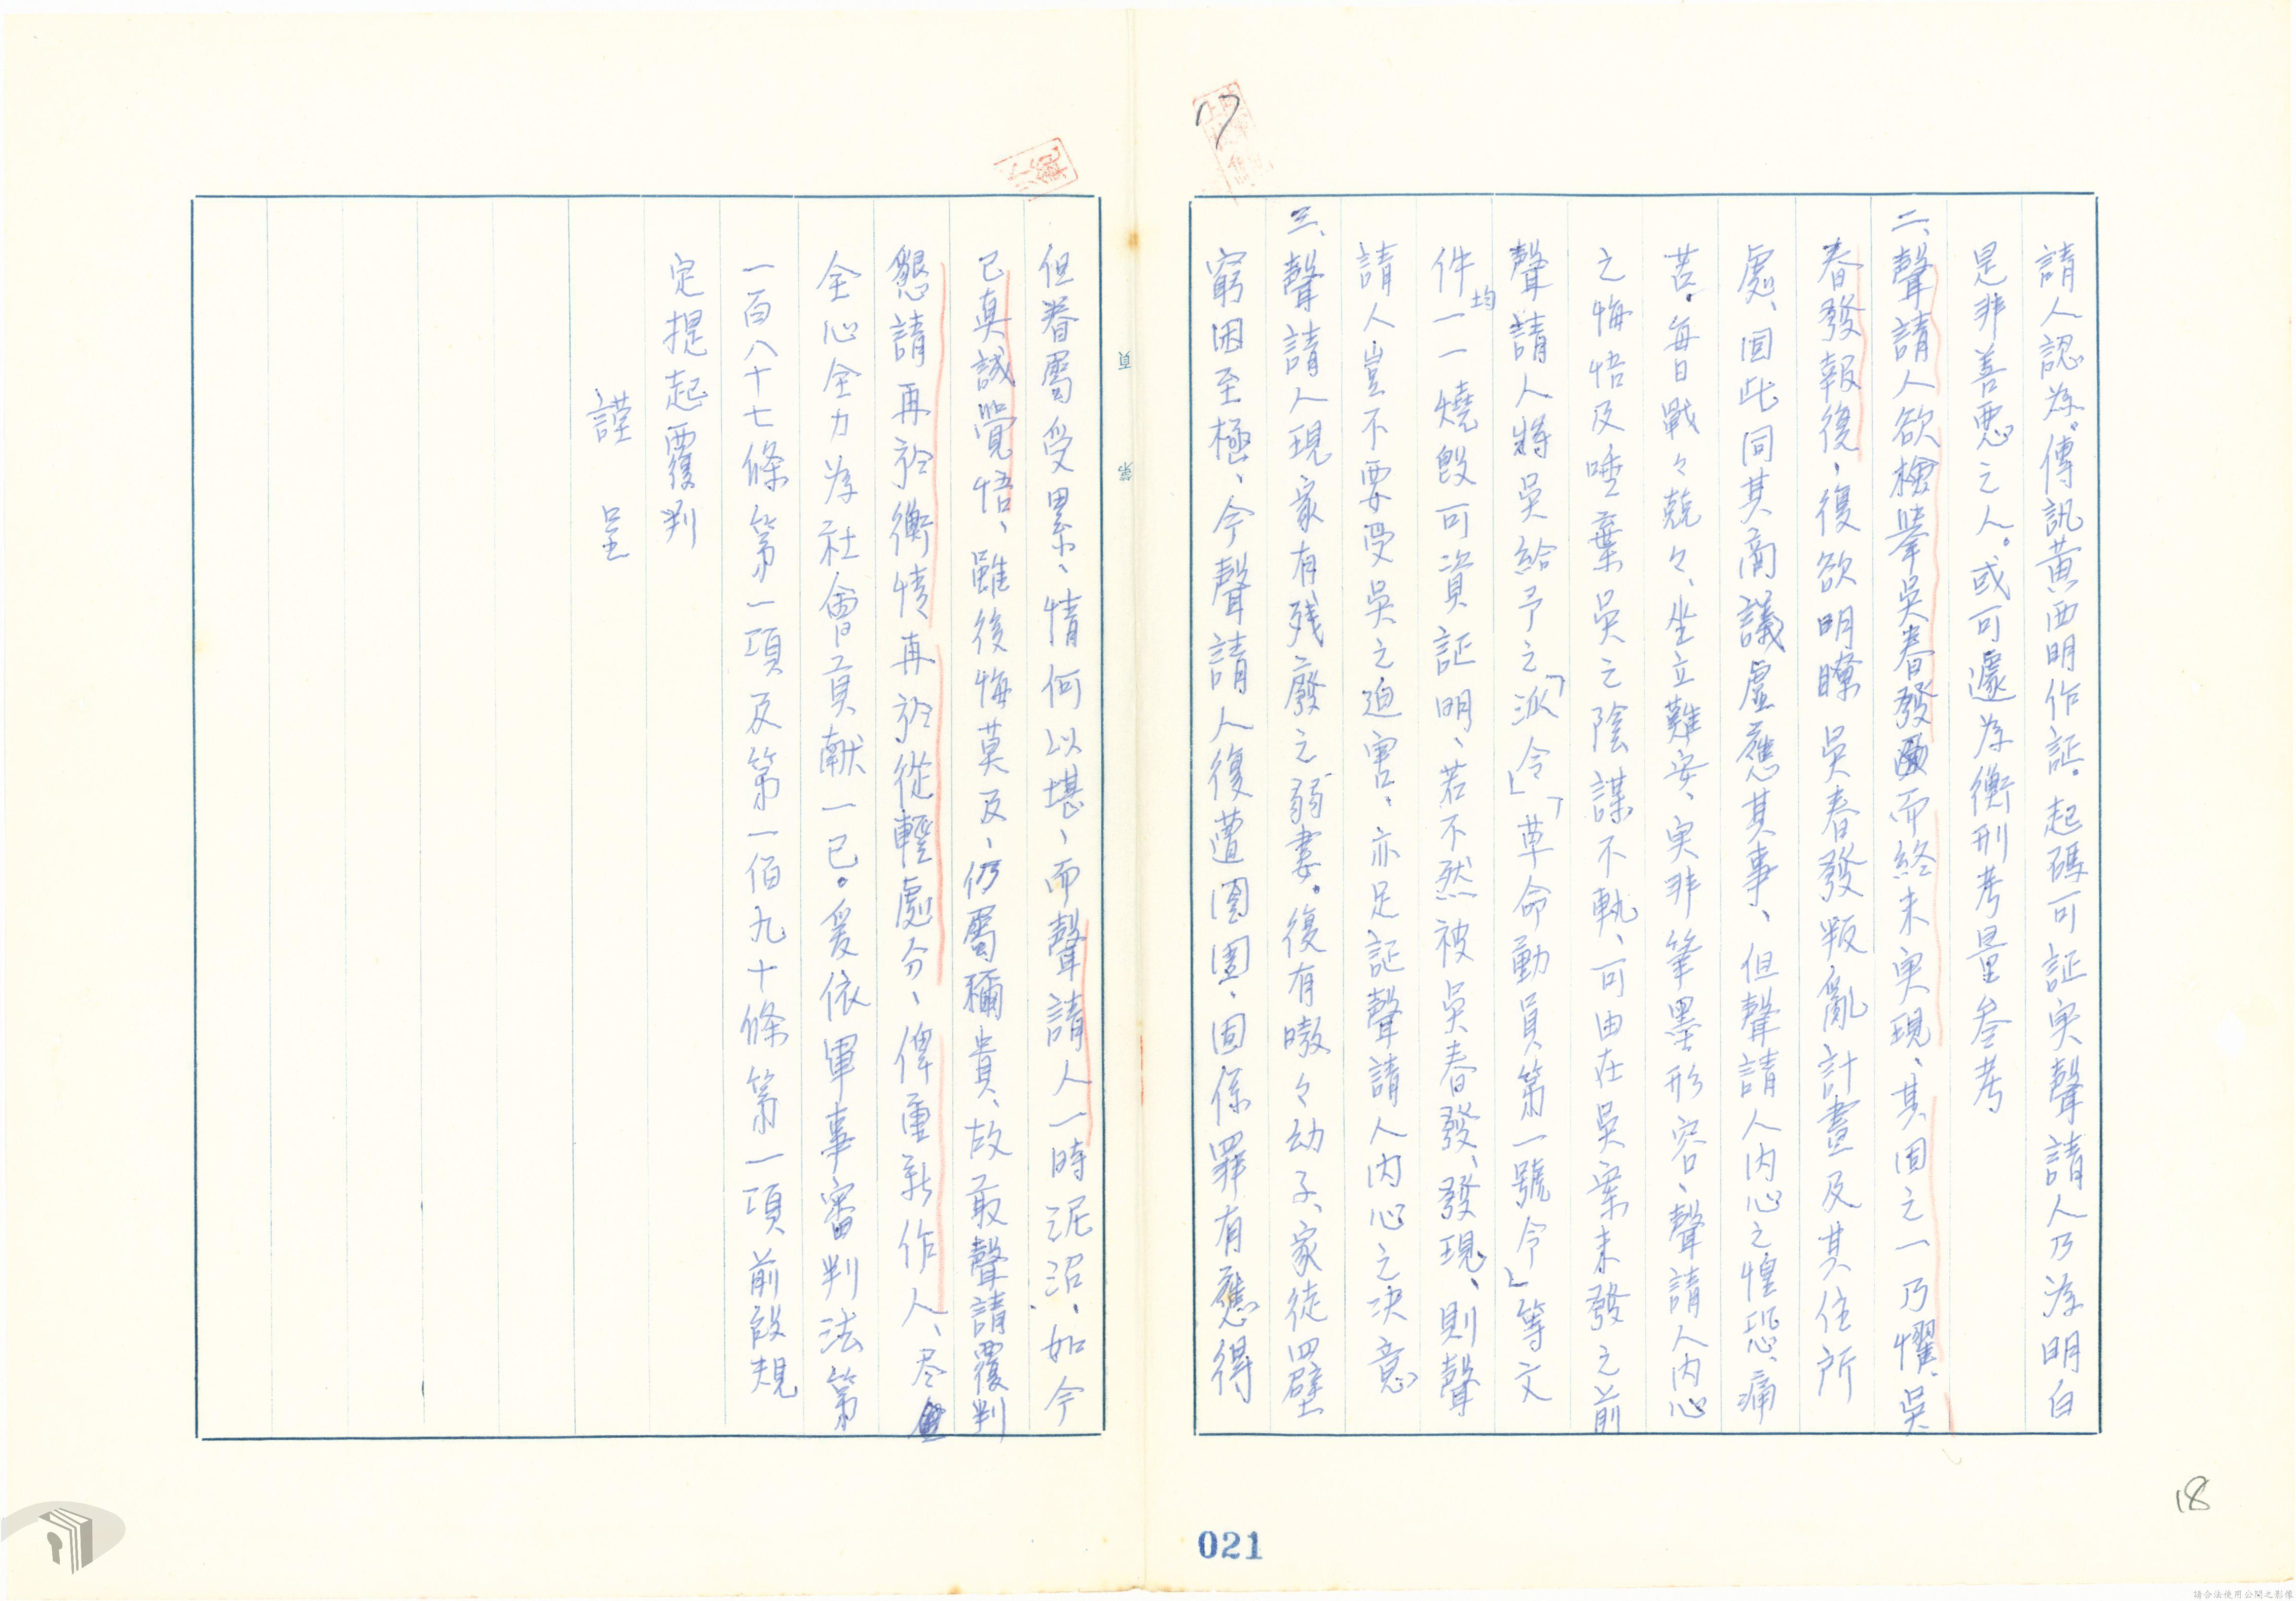 請人認為。傳訊黃西明作証。起碼可証实聲請人乃為明白
是非善惡之人。或可遽為衡刑考量參考
二、聲請人欲檢舉吳春發而終未实現、其因之一乃懼、吳
春發報復，復欲明瞭吳春發叛亂計畫及其住所
處、因此同其商議虛應其事、但聲請人內心之惶恐、痛
苦。每日戰々兢々、坐立難安、实非筆墨形容、聲請人內心
之悔悟及唾棄吳之陰謀不軌、可由在吳案未發之前
聲請人將吳給予之「派令」「革命動員第一號令」等文
件均一一燒毀可資証明、若不然被吳春發、發現、則聲
請人豈不要受吳之迫害、亦足証聲請人內心之決意
三、聲請人現家有殘廢之弱妻。復有嗷々幼子、家徒四壁
窮困至極、今聲請人復遭囹圄、固係罪有應得
但眷屬受累、情何以堪、而聲請人一時泥沼、如今
已真誠覺悟、雖後悔莫及、仍屬彌貴、故敢聲請覆判
懇請再於衡情再於從輕處分、俾重新作人、尽
全心全力為社會貢献一己。爰依軍事審判法第
一百八十七條第一項及第一佰九十條第一項前段規
定提起覆判
謹 呈
第 頁
021
18
17
請合法使用公開之影像